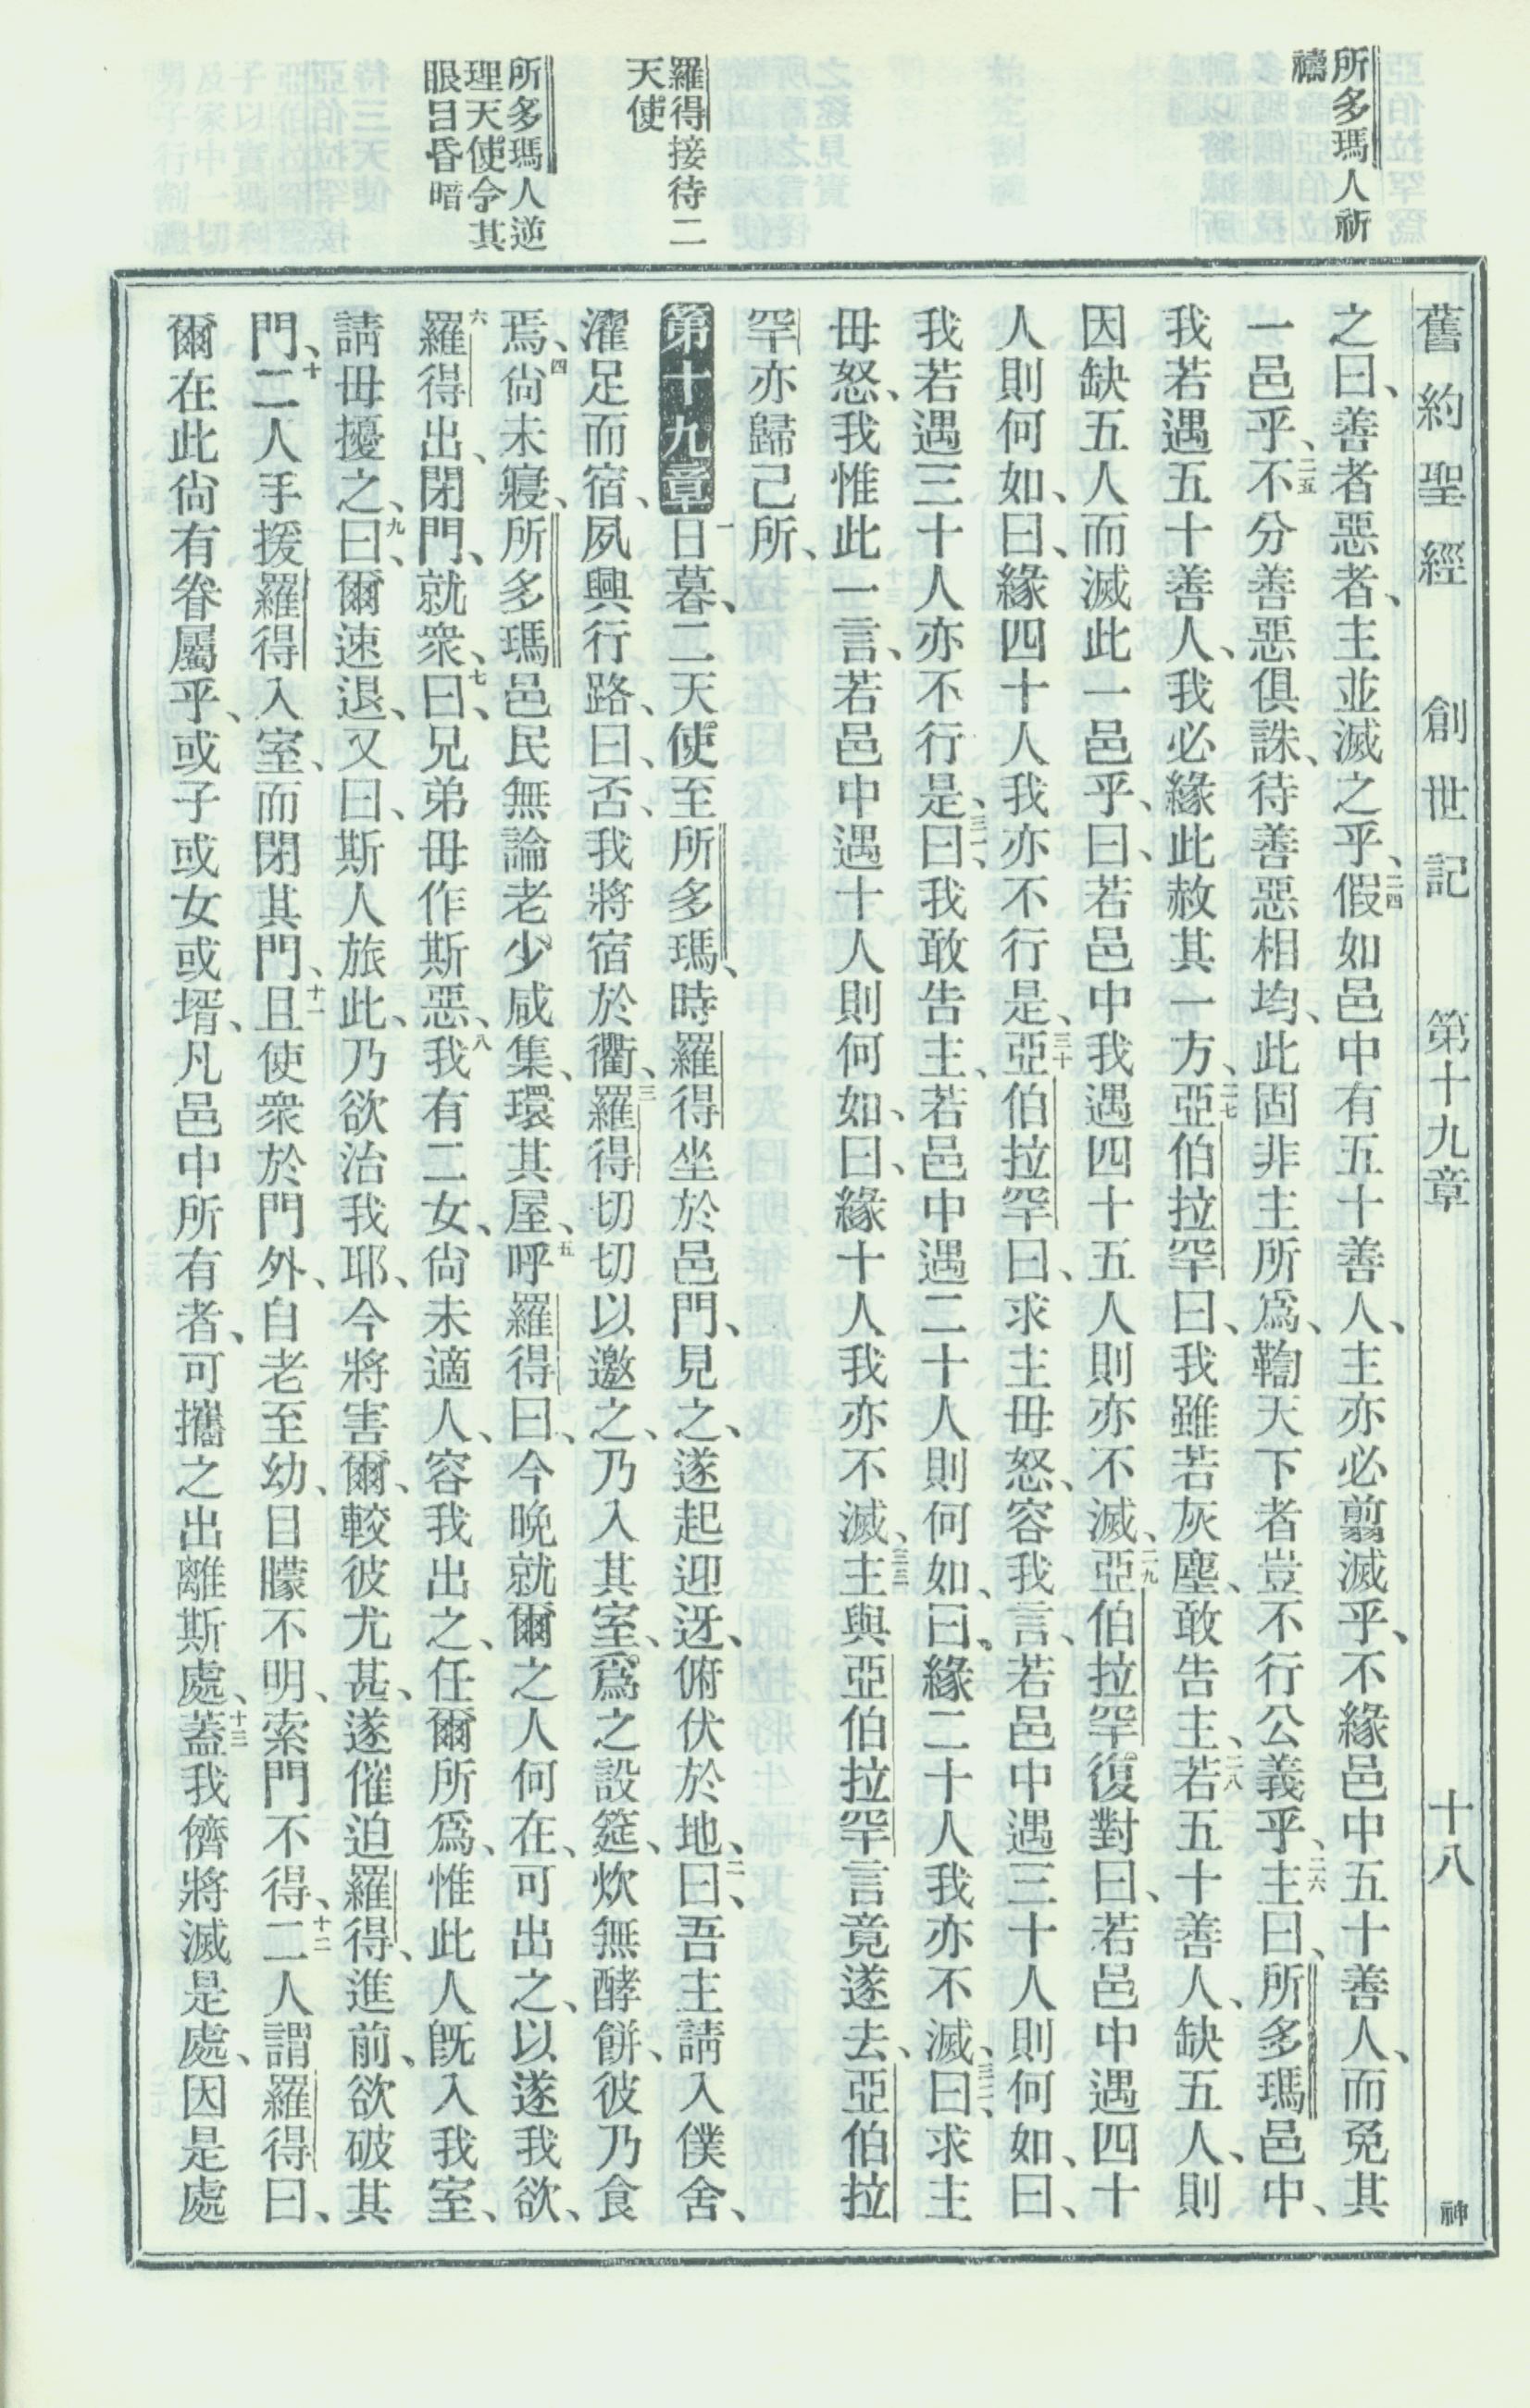 所多瑪人祈
禱
羅得接待二
天使
所多瑪人逆
理天使令其
眼目昏暗
舊約聖經 創世記 第十九章 十八 神
之曰、善者惡者、主並滅之乎、二四假如邑中有五十善人、主亦必翦滅乎、不緣邑中五十善人、而免其
一邑乎、二五不分善惡俱誅、待善惡相均、此固非主所爲、鞫天下者豈不行公義乎、二六主曰、所多瑪邑中、
我若遇五十善人、我必緣此赦其一方、二七亞伯拉罕曰、我雖若灰塵、敢告主、二八若五十善人、缺五人、則
因缺五人而滅此一邑乎、曰、若邑中我遇四十五人則亦不滅、二九亞伯拉罕復對曰、若邑中遇四十
人則何如、曰、緣四十人我亦不行是、三十亞伯拉罕曰、求主毋怒、容我言、若邑中遇三十人則何如、曰、
我若遇三十人亦不行是、三一曰、我敢告主、若邑中遇二十人則何如、曰、緣二十人我亦不滅、三二曰、求主
毋怒、我惟此一言、若邑中遇十人則何如、曰、緣十人我亦不滅、三三主與亞伯拉罕言竟遂去、亞伯拉
罕亦歸己所、
第十九章 一日暮、二天使至所多瑪、時羅得坐於邑門、見之、遂起迎迓、俯伏於地、二曰、吾主請入僕舍、
濯足而宿、夙興行路、曰、否、我將宿於衢、三羅得切切以邀之、乃入其室、爲之設筵、炊無酵餅、彼乃食
焉、四尙未寢、所多瑪邑民無論老少咸集、環其屋、五呼羅得曰、今晚就爾之人何在、可出之、以遂我欲、
六羅得出、閉門、就衆、七曰、兄弟毋作斯惡、八我有二女、尙未適人、容我出之、任爾所爲、惟此人旣入我室、
請毋擾之、九曰、爾速退、又曰、斯人旅此、乃欲治我耶、今將害爾、較彼尤甚、遂催迫羅得、進前、欲破其
門、十二人手援羅得入室、而閉其門、十一且使衆於門外、自老至幼、目矇不明、索門不得、十二二人謂羅得曰、
爾在此尙有眷屬乎、或子或女或壻、凡邑中所有者、可攜之出離斯處、十三蓋我儕將滅是處、因是處